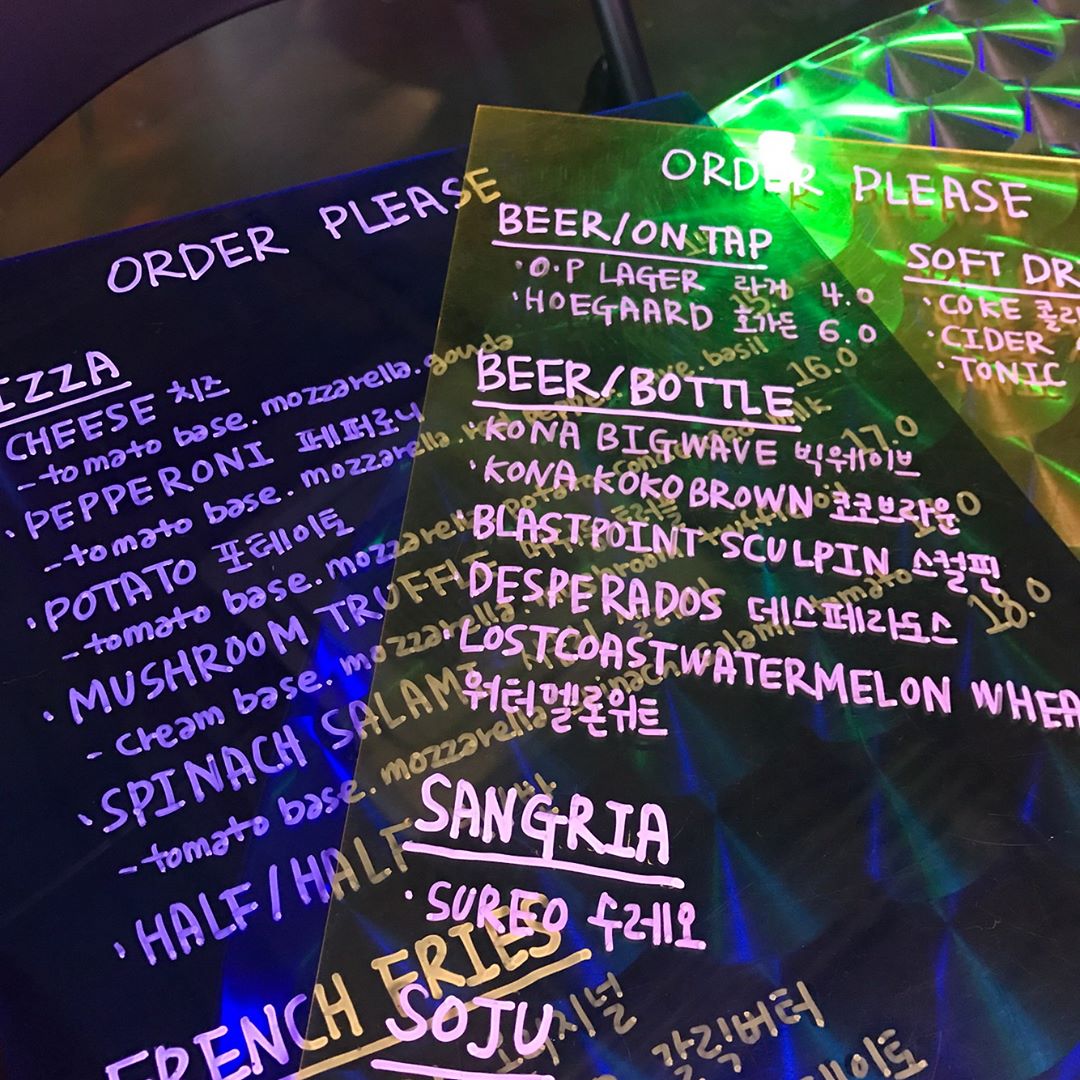 ORDER PLEASE
PIZZA
CHEESE 치즈
- tomato base. mozzarella. gouda
· PEPPERONI 페퍼로니
- tomato base. mozzarella.
· POTATO 포테이토
- tomato base. mozzarella. potato
· MUSHROOM TRUFFLE 트러플
- cream base. mozzarella. mushroom. truffle oil
· SPINACH SALAMI
- tomato base. mozzarella. spinach. salami. tomato
· HALF/HALF
16.0
17.0
18.0
FRENCH FRIES
오리지널
갈릭버터
ORDER PLEASE
BEER/ON TAP
· O.P LAGER 라거 4.0
· HOEGAARD 호가든 6.0
BEER/BOTTLE
· KONA BIGWAVE 빅웨이브
· KONA KOKOBROWN 코코브라운
· BLASTPOINT SCULPIN 스컬핀
· DESPERADOS 데스페라도스
· LOSTCOASTWATERMELON WHEA
워터멜론위트
SANGRIA
· SUREO 수레오
SOJU
SOFT DR
· COKE 콜라
· CIDER
· TONIC